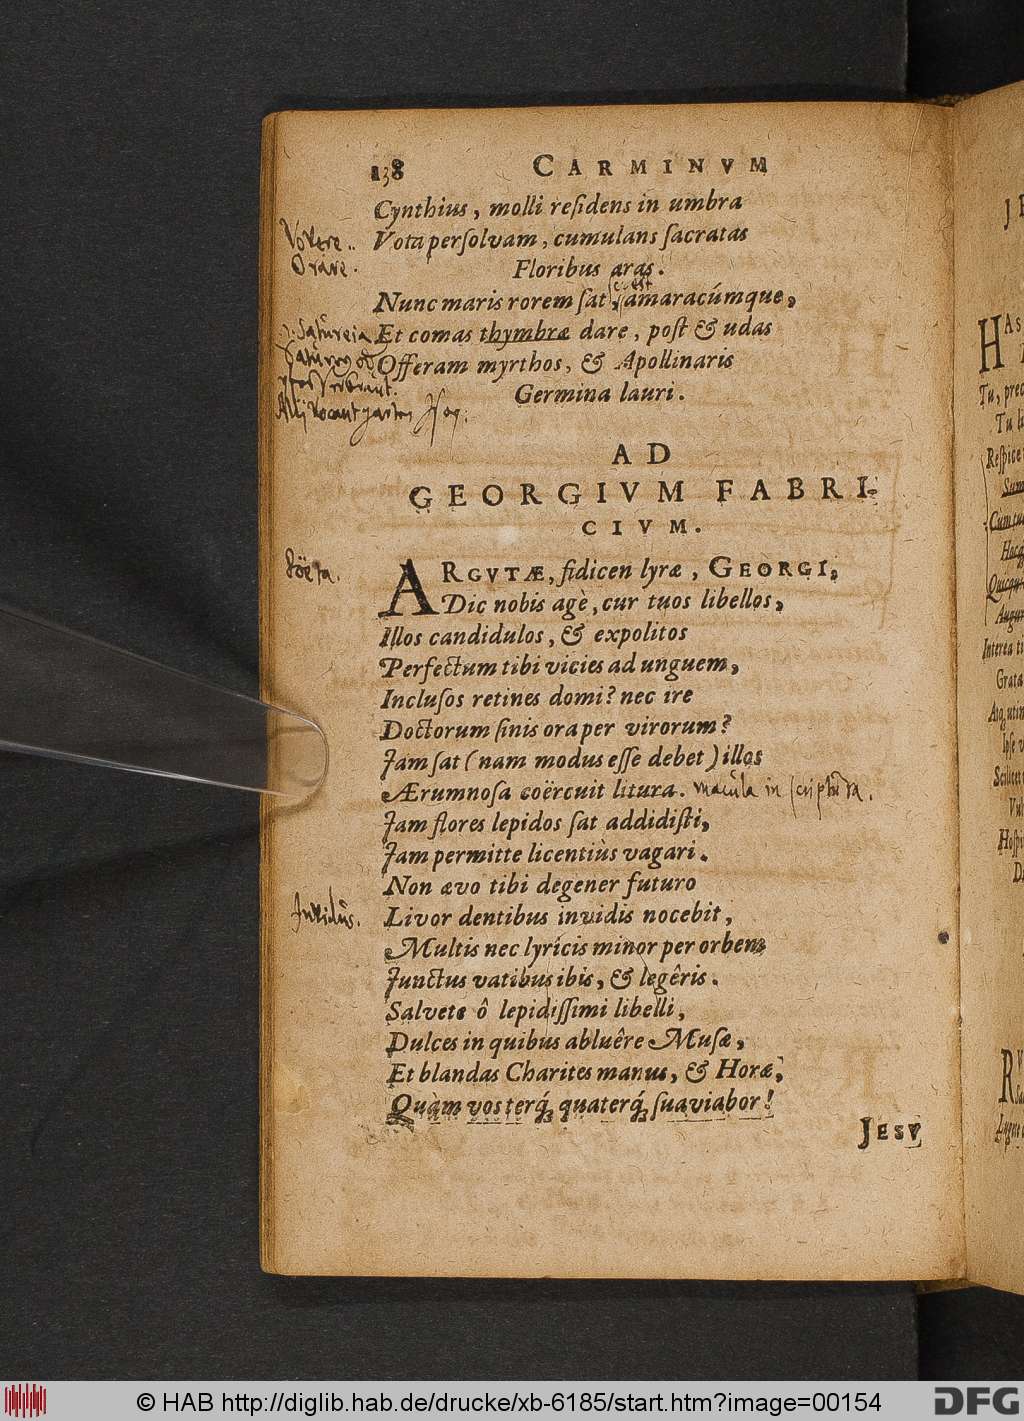 138 CARMINVM
Cynthius, molli reſidens in umbra
Vovere..
Vota perſolvam, cumulans ſacratas
Orare.
Floribus aras.
est
Nunc maris rorem ſat, amaracúmque,
Satureia
Et comas thymbræ dare, poſt & udas
Offeram myrthos, & Apollinaris
Germina lauri.
Alij vocant garten
AD
GEORGIVM FABRI-
CIVM.
Poëta.
ARGVTÆ, fidicen lyræ, GEORGI,
Dic nobis agè, cur tuos libellos,
Illos candidulos, & expolitos
Perfectum tibi vicies ad unguem,
Incluſos retines domi? nec ire
Doctorum ſinis ora per virorum?
Jam ſat (nam modus eſſe debet) illos
Ærumnoſa coërcuit litura. macula in ſcriptura.
Jam flores lepidos ſat addidiſti,
Jam permitte licentiùs vagari.
Non ævo tibi degener futuro
Invidus.
Livor dentibus invidis nocebit,
Multis nec lyricis minor per orbem
Junctus vatibus ibis, & legêris.
Salvete ô lepidiſſimi libelli,
Dulces in quibus abluêre Muſæ,
Et blandas Charites manus, & Horæ,
Quàm vos terq́; quaterq́; ſuaviabor!
JESV
HAs
Tu, prec
Tu
Reſpice
Sum
Cum tu
Hocq
Quicqu
Augur
Interea ti
Grata
Atq, utin
Ipſe v
Scilicet
Vul
Hoſpi
D
© HAB http://diglib.hab.de/drucke/xb-6185/start.htm?image=00154
DFG